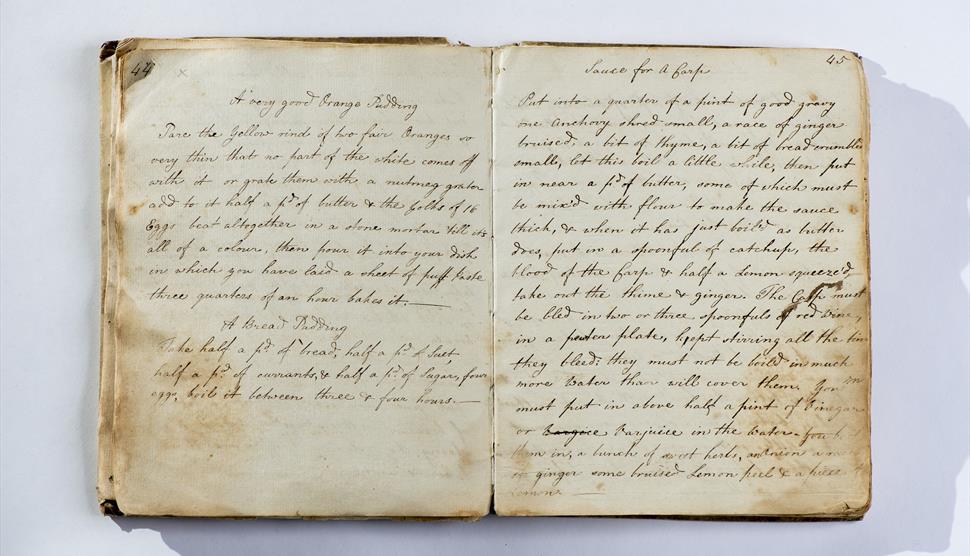 44 x
A very good Orange Pudding
Pare the Yellow rind of two fair Oranges so
very thin that no part of the white comes off
with it or grate them with a nutmeg grater
add to it half a pd. of butter & the Yolks of 16
Eggs beat altogether in a stone mortar till its
all of a colour, then pour it into your dish
in which you have laid a sheet of puff Paste
three quarters of an hour bakes it.
A Bread Pudding
Take half a pd. of bread, half a pd. of Suet,
half a pd. of currants, & half a pd. of Sugar, four
eggs, boil it between three & four hours.
45
Sauce for A Carp
Put into a quarter of a pint of good gravy
one Anchovy shred small, a race of ginger
bruised, a bit of thyme, a bit of bread crumbled
small, let this boil a little while, then put
in near a pd. of butter, some of which must
be mix'd with flour to make the sauce
thick, & when it has just boil'd as butter
does, put in a spoonful of catchup, the
blood of the Carp & half a Lemon squeez'd,
take out the thime & ginger. The Carp must
be bled in two or three spoonfuls of red Wine,
in a pewter plate, kept stirring all the time
they bleed: they must not be boil'd in much
more Water than will cover them. You
must put in above half a pint of Vinegar
or Varjuice in the Water. You
them in, a bunch of sweet herbs, an onion a race
ginger some bruised Lemon peel & a piece
Lemon.